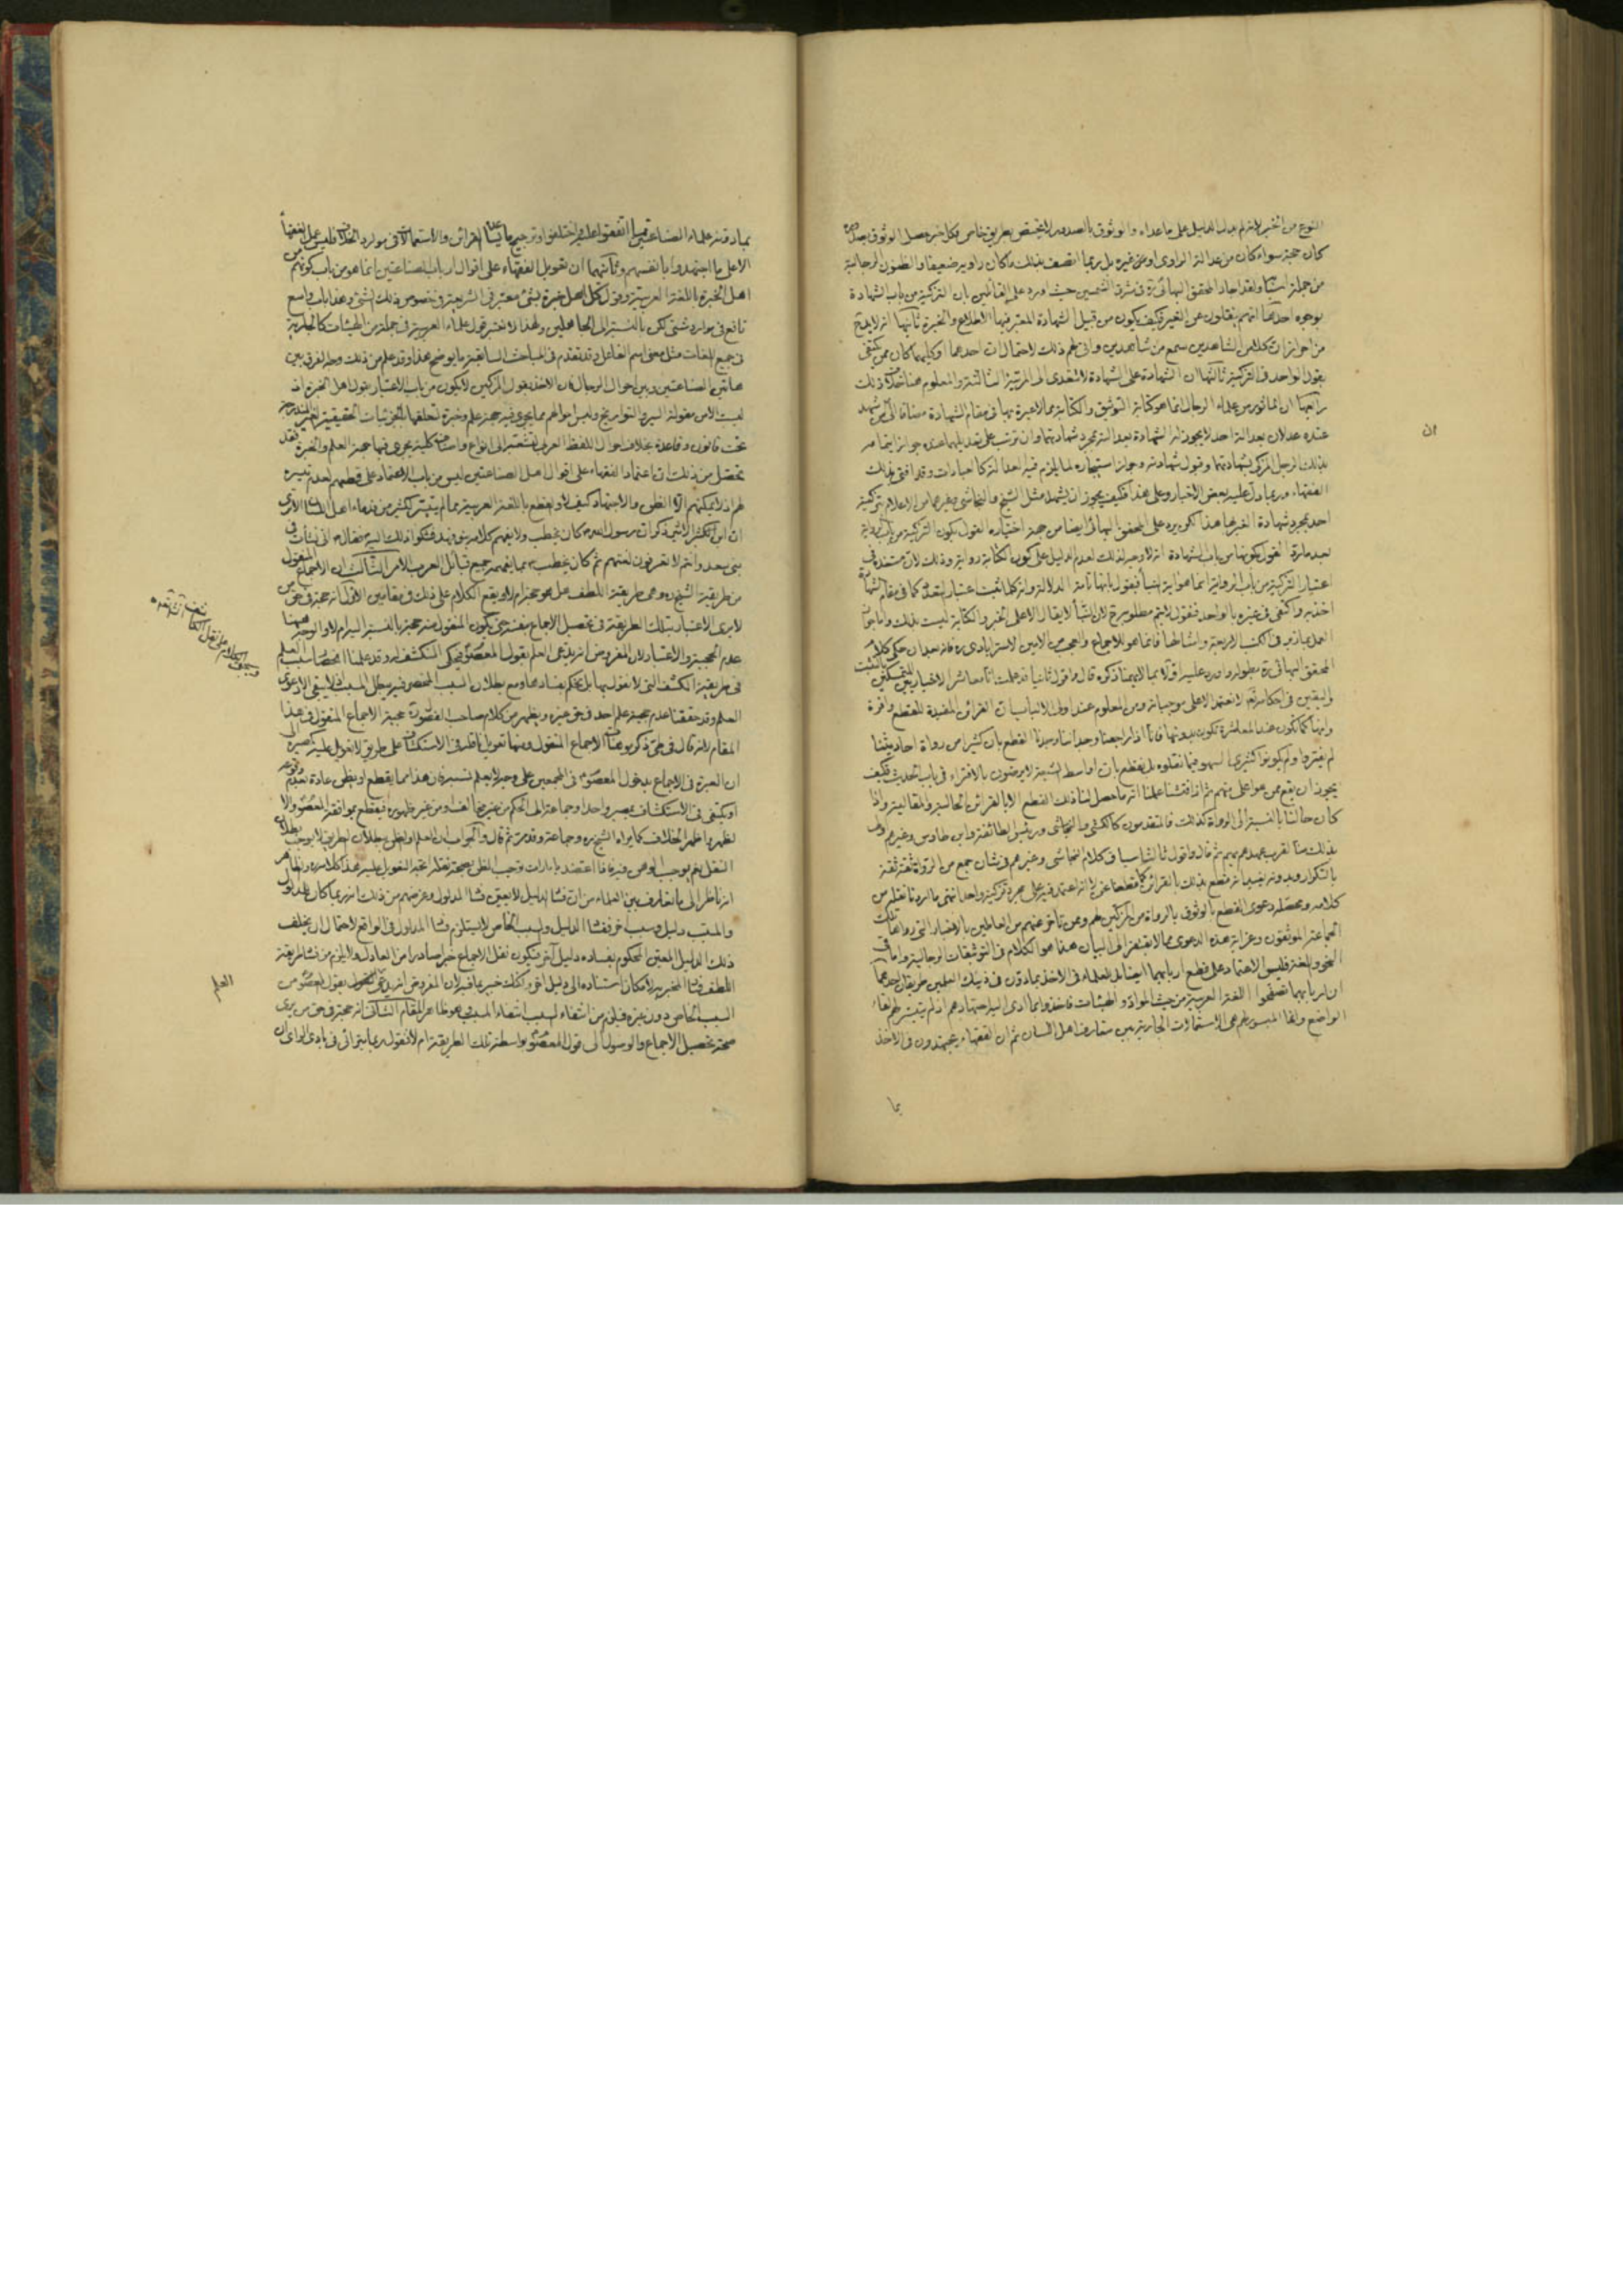 النوع من الخبر لانه لم يدل الدليل على ما عداه والوثوق بالصدور لا يختص بطريق خاص فكل خبر حصل الوثوق بصدوره
كان حجة سواء كان من عدالة الراوى او من غيره بل ربما اتصف بذلك ما كان راويه ضعيفا والظنون الرجالية
من جملة اسبابها ولقد اجاد المحقق البهائى ره فى مشرق الشمسين حيث اورد على القائلين بان التزكية من باب الشهادة
بوجوه احدها انهم ينقلون عن الغير فكيف يكون من قبيل الشهادة المعتبر فيها الاطلاع والخبرة ثانيها انه لا يتم
من احراز ان كلا من الشاهدين سمع من شاهدين وانى لهم ذلك لاحتمال ان احدهما او كليهما كان ممن يكتفى
بقول الواحد فى التزكية ثالثها ان الشهادة على الشهادة لا تتعدى الى المرتبة الثالثة والمعلوم هنا خلاف ذلك
رابعها ان المأثور من علماء الرجال انما هو كتابة التوثيق والكتابة مما لا عبرة بها فى مقام الشهادة مضافا الى من شهد
عنده عدلان بعدالة احد لا يجوز له الشهادة بعدالته بمجرد شهادتهما وان ترتب على تعديلهما عنده جواز ايتمامه
بذلك الرجل المزكى بشهادتهما وقبول شهادته وجواز استيجاره لما يلزم فيه العدالة كالعبادات وقد افتى بذلك
الفقهاء وربما دل عليه بعض الاخبار وعلى هذا فكيف يجوز ان يشهد مثل الشيخ والنجاشى وغيرهما من الاعلام بتزكية
احد بمجرد شهادة الغير بها هذا لكن يرد على المحقق البهائى ايضا من جهة اختياره القول بكون التزكية من باب الرواية
بعد ما رد القول بكونها من باب الشهادة انه لا وجه لذلك لعدم الدليل على كون الكتابة رواية وذلك لان مستنده فى
اعتبار التزكية من باب الرواية انما هو اية النبأ فيقول بانها تامة الدلالة وانه كلما ثبت اعتبار التعدد كما فى مقام الشهادة
اخذ به واكتفى فى غيره بالواحد فنقول لا يتم مطلوبه ح لان النبأ لا يقال الا على الخبر والكتابة ليست بذلك واما جواز
العمل بما دون فى الكتب الاربعة وامثالها فانما هو للاجماع والعجب من الامين الاسترابادى ره فانه بعد ان حكى كلام
المحقق البهائى ره بطوله واورد عليه اولا بما لا يهمنا ذكره قال واقول ثانيا قد علمت انا معاشر الاخباريين المتمسكين بالتثبت
واليقين فى احكامه تعالى لا نعتمد الا على موجباته ومن المعلوم عند اولى الالباب ان القرائن المفيدة للقطع وافرة
وانها كما تكون عند المعاشرة تكون بدونها فانا اذا راجعنا وجداننا وجدنا القطع بان كثيرا من رواة احاديثنا
لم يفتروا ولم يكونوا كثيرى السهو فيما نقلوه بل نقطع بان اواسط الشيعة لا يرضون بالافتراء فى باب الحديث فكيف
يجوز ان يقع ممن هو اعلى منهم ثم اذا فتشنا علمنا انه ما حصل لنا ذلك القطع الا بالقرائن الحالية والمقالية واذا
كان حالنا بالنسبة الى الرواة كذلك فالمتقدمون كالكشى والنجاشى ورئيس الطائفة وابن طاوس وغيرهم اولى
بذلك منا لقرب عهدهم بهم ثم قال واقول ثالثا سياق كلام النجاشى وغيرهم فى شان جمع من الرواة ثقة ثقة
بالتكرار وبدونه يفيد انه قطع بذلك بالقرائن كما قطعنا نحن لا انه اعتمد فيه على مجرد تزكية واحد انتهى ما اردنا نقله من
كلامه ومحصله دعوى القطع بالوثوق بالرواة من المزكين لهم وممن تأخر عنهم من العاملين بالاخبار التى رواها تلك
الجماعة الموثقون وغرابة هذه الدعوى مما لا يفتقر الى البيان هذا هو الكلام فى التوثيقات الرجالية واما فى
النحو واللغة فليس الاعتماد على قطع اربابهما ايضا بل للعلماء فى الاخذ بما دون فى ذينك العلمين طريقان احدهما
ان اربابهما تصفحوا اللغة العربية من حيث المواد والهيئات فاخذوا بما ادى اليه اجتهادهم اذ لم يتيسر لهم لقاء
الواضع وانما الميسور لهم هى الاستعمالات الجارية بين متعارف اهل اللسان ثم ان الفقهاء يجتهدون فى الاخذ
بما
ان
بما دونه علماء الصناعتين مما اتفقوا عليه او اختلفوا وترجيح ما يساعده القرائن والاستعمالات فى موارد الخلاف فليس عمل الفقهاء
الا على ما اجتهدوا بانفسهم وثانيهما ان تعويل الفقهاء على اقوال ارباب الصناعتين انما هو من باب كونهم من
اهل الخبرة باللغة العربية وقول كل اهل خبرة بشىء معتبر فى الشريعة فى خصوص ذلك الشىء وهذا باب واسع
نافع فى موارد شتى لكن بالنسبة الى الجاهلين ولهذا لا نعتبر قول علماء العربية فى جملة من الهيئات كالجارية
فى جميع اللغات مثل معنى اسم الفاعل وقد تقدم فى المباحث السابقة ما يوضح هذا وقد علم من ذلك وجه الفرق بين
هاتين الصناعتين وبين احوال الرجال فان الاخذ بقول المزكين لا يكون من باب الاعتبار بقول اهل الخبرة اذ
ليست الا من مقولة السير والتواريخ وليس احوالهم مما يجرى فيه جهة علم وخبرة لتعلقها بالجزئيات الحقيقية الغير المندرجة
تحت قانون وقاعدة بخلاف احوال اللفظ العربى لتشعبه الى انواع واصناف كلية يجرى فيها جهة العلم والخبرة فقد
تحصل من ذلك ان اعتماد الفقهاء على اقوال اهل الصناعتين ليس من باب الاعتماد على قطعهم لعدم تيسره
لهم اذ لا يمكنهم الا الظن والاجتهاد كيف لا والقطع باللغة العربية مما لم يتيسر لكثير من فصحاء اهل اللسان الا ترى
بنى سعد وانتم لا تعرفون لغتهم ثم كان يخطب بما يفهمه جميع قبائل العرب الامر الثالث ان الاجماع المنقول
من طريقة الشيخ ره وهى طريقة اللطف هل هو حجة ام لا ويقع الكلام على ذلك فى مقامين الاول انه حجة فى حق من
لا يرى الاعتبار بتلك الطريقة فى تحصيل الاجماع بنفسه حتى يكون المنقول منه حجة بالنسبة اليه ام لا والوجه هنا
عدم الحجية والاعتبار لان المفروض انه يدعى العلم بقول المعصوم فيحكى المنكشف له وقد علمنا انحصار سبب العلم
فى طريقة الكشف التى لا نقول بها بل نحكم بفسادها ومع بطلان السبب المنحصر فيه يبطل المسبب اذ لا يبقى الا دعوى
العلم وقد حققنا عدم حجية علم احد فى حق غيره ويظهر من كلام صاحب الفصول ره حجية الاجماع المنقول فى هذا
المقام لانه قال فى طى ذكر موهنات الاجماع المنقول ومنها تعويل ناقله فى الاستكشاف على طريق لا نعول عليه كمصيره الى
ان العبرة فى الاجماع بدخول المعصوم فى المجمعين على وجه لا يعلم نسبه فان هذا مما يقطع او يظن عادة بعدم وقوعه
او يكتفى فى الاستكشاف بمصير واحد او جماعة الى الحكم من غير مخالف او من غير ظهوره فيقطع بموافقة المعصوم والا
لظهر واظهر الخلاف كما يراه الشيخ ره وجماعة وقد مر ثم قال والجواب ان العلم او الظن ببطلان الطريق لا يوجب بطلان
النقل نعم يوجب الوهن فيه فاذا اعتضد بامارات توجب الظن بصحة نقله اتجه التعويل عليه هذا كلامه ره والظاهر
انه ناظر الى ما تعارف بين العلماء من ان فساد الدليل لا يعين فساد المدلول وغرضهم من ذلك انه ربما كان للمدلول
والمسبب دليل وسبب اخر ففساد الدليل والسبب الخاص لا يستلزم فساد المدلول فى الواقع لاحتمال ان يخلف
ذلك الدليل المعين المحكوم بفساده دليل آخر فيكون نقل الاجماع خبرا صادرا من العادل ولا يلزم من فساد طريقة
السبب الخاص دون غيره فيلزم من انتفاء السبب انتفاء المسبب وهو ظاهر المقام الثانى انه حجة فى حق من يرى
صحة تحصيل الاجماع والوصول الى قول المعصوم بواسطة تلك الطريقة ام لا فنقول ربما يترائى فى بادى الراى ان
العلم